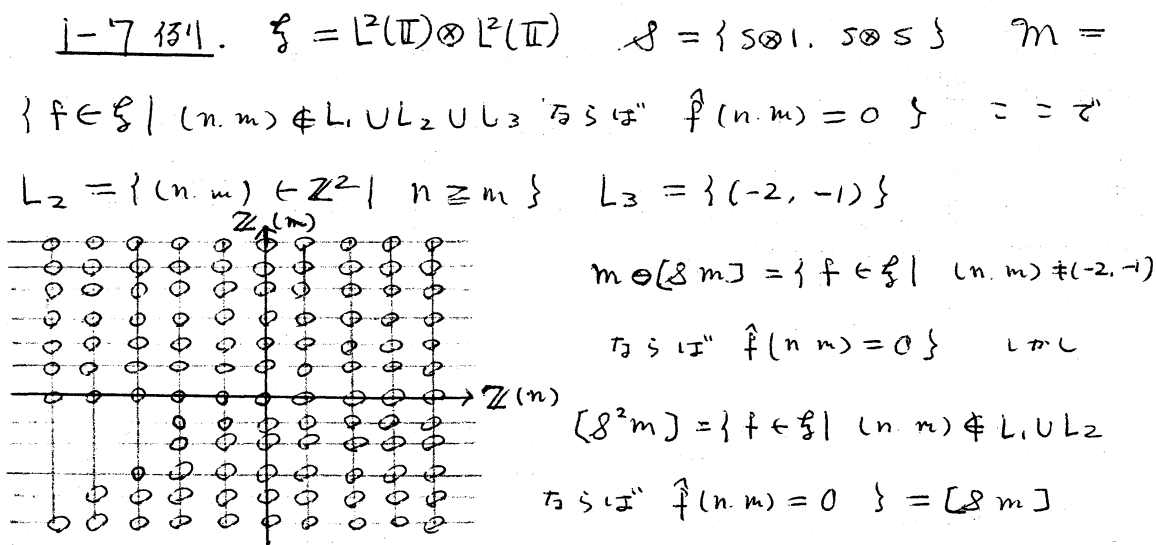 1-7 例. ξ = L²(𝕋)⊗L²(𝕋) 𝒮 = { S⊗1. S⊗S } m =
{ f∈ξ | (n.m)∉L₁∪L₂∪L₃ ならば f̂(n.m)=0 } ここで
L₂ = { (n.m)∈ℤ² | n≧m } L₃ = { (-2, -1) }
ℤ(m)
m⊖[𝒮m] = { f∈ξ | (n.m)≠(-2,-1)
ならば f̂(n m)=0 } しかし
ℤ(n)
[𝒮²m] = { f∈ξ | (n n)∉L₁∪L₂
ならば f̂(n.m)=0 } = [𝒮m]